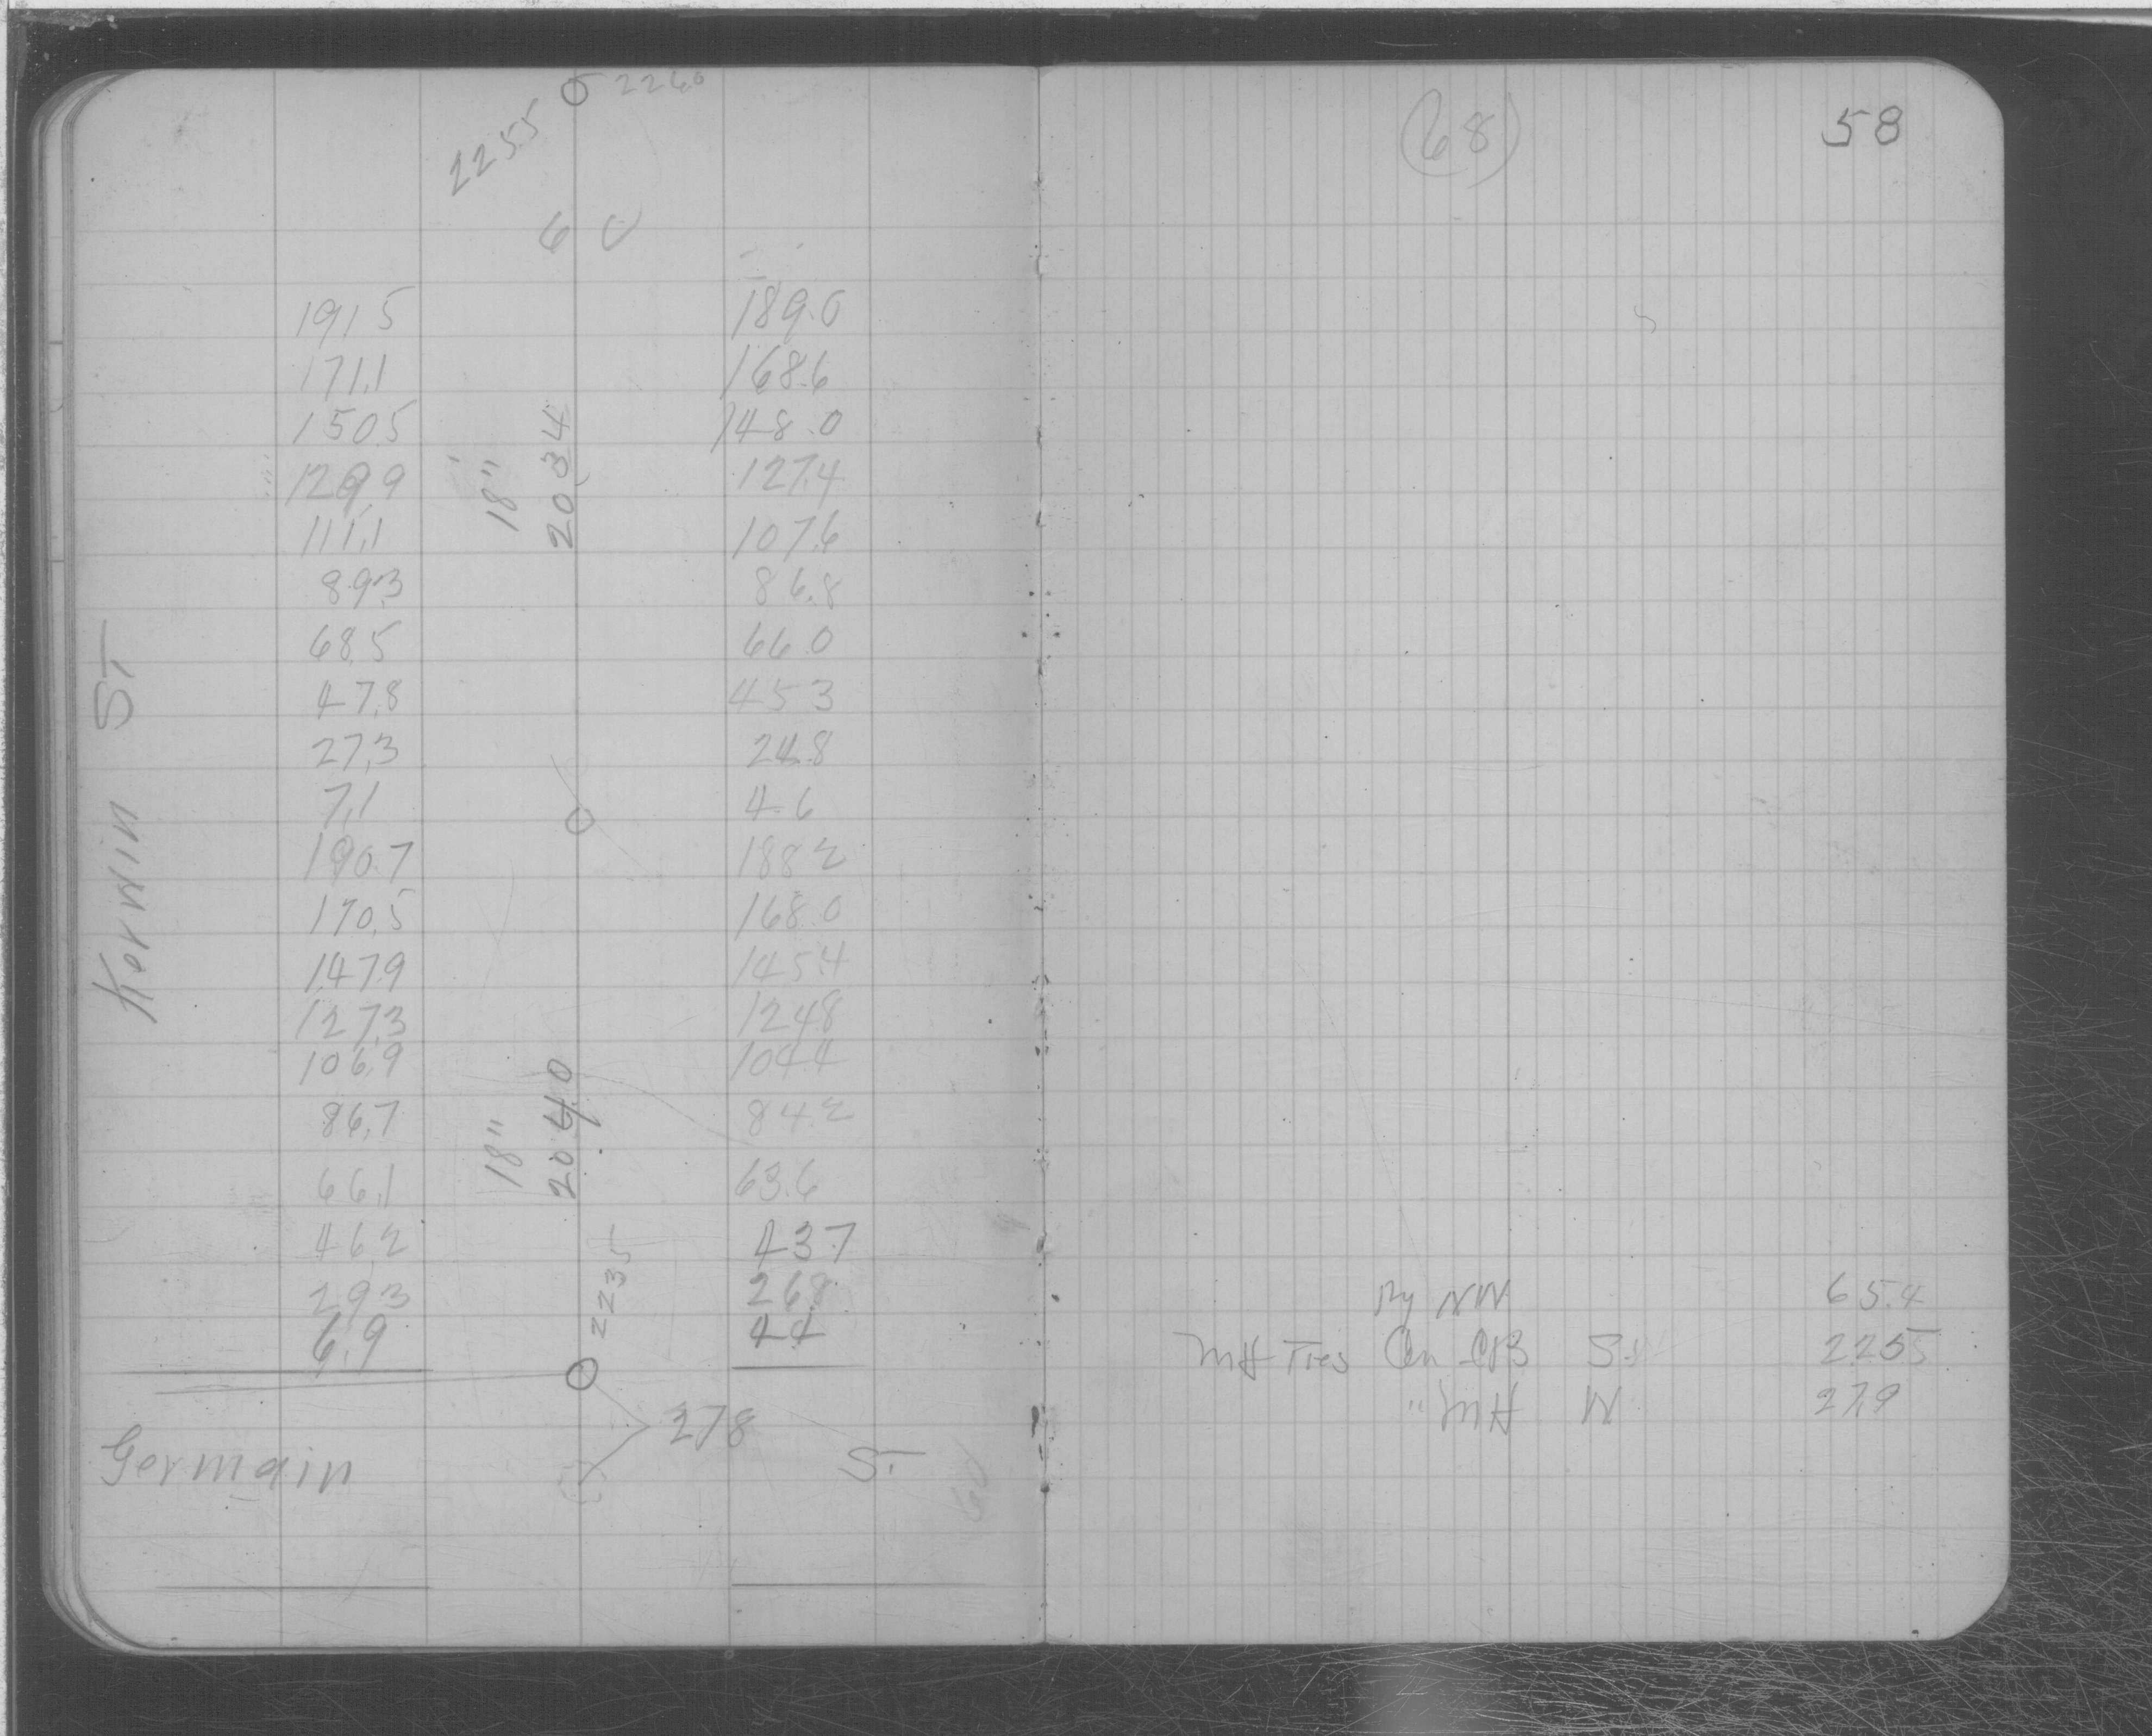 2255 2260
6 C
191.5 189.0
171.1 168.6
150.5 148.0
129.9 127.4
18" 20.34
111.1 107.6
89.3 86.8
68.5 66.0
47.8 45.3
27.3 24.8
7.1 4.6
190.7 188.2
170.5 168.0
147.9 145.4
127.3 124.8
106.9 104.4
86.7 84.2
18" 20.40
66.1 63.6
46.2 43.7
29.3 26.8
6.9 4.4
2235
Korwin ST.
278
Germain ST.
(68) 58
NW 65.4
MH Ties On CB 2255
" MH W 27.9